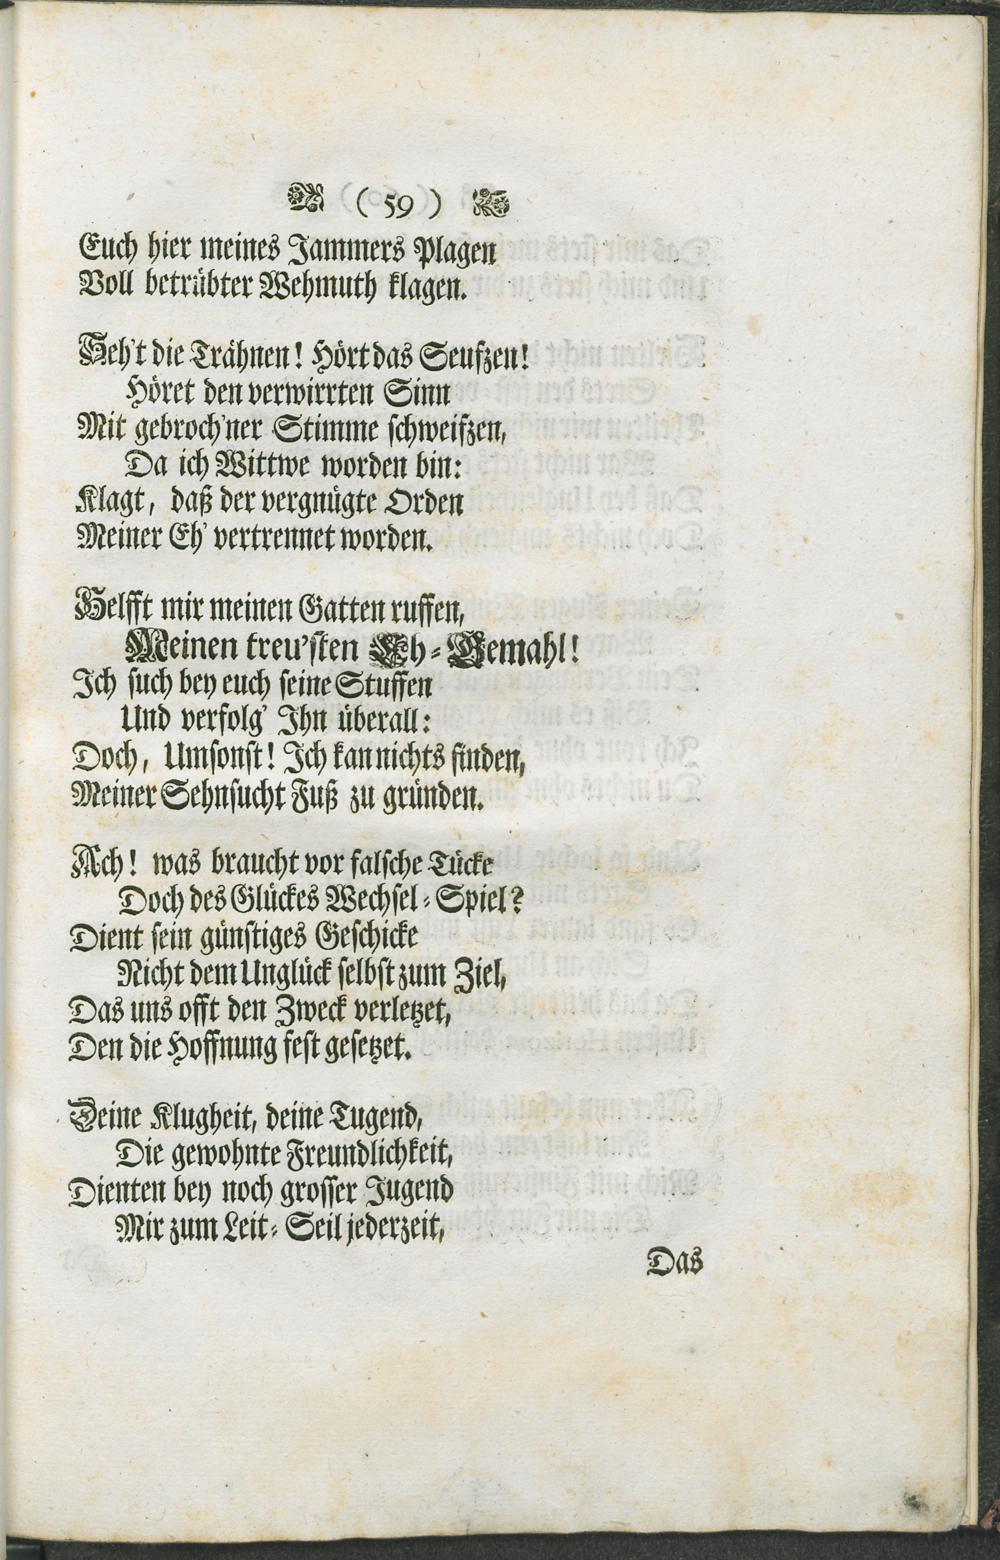 ( 59 )
Euch hier meines Jammers Plagen
Voll betrübter Wehmuth klagen.
Seh't die Trähnen! Hört das Seufzen!
Höret den verwirrten Sinn
Mit gebroch'ner Stimme schweifzen,
Da ich Wittwe worden bin:
Klagt, daß der vergnügte Orden
Meiner Eh' vertrennet worden.
Helfft mir meinen Gatten ruffen,
Meinen treu'sten Eh-Gemahl!
Ich such bey euch seine Stuffen
Und verfolg' Ihn überall:
Doch, Umsonst! Ich kan nichts finden,
Meiner Sehnsucht Fuß zu gründen.
Ach! was braucht vor falsche Tücke
Doch des Glückes Wechsel-Spiel?
Dient sein günstiges Geschicke
Nicht dem Unglück selbst zum Ziel,
Das uns offt den Zweck verletzet,
Den die Hoffnung fest gesetzet.
Deine Klugheit, deine Tugend,
Die gewohnte Freundlichkeit,
Dienten bey noch grosser Jugend
Mir zum Leit-Seil jederzeit,
Das